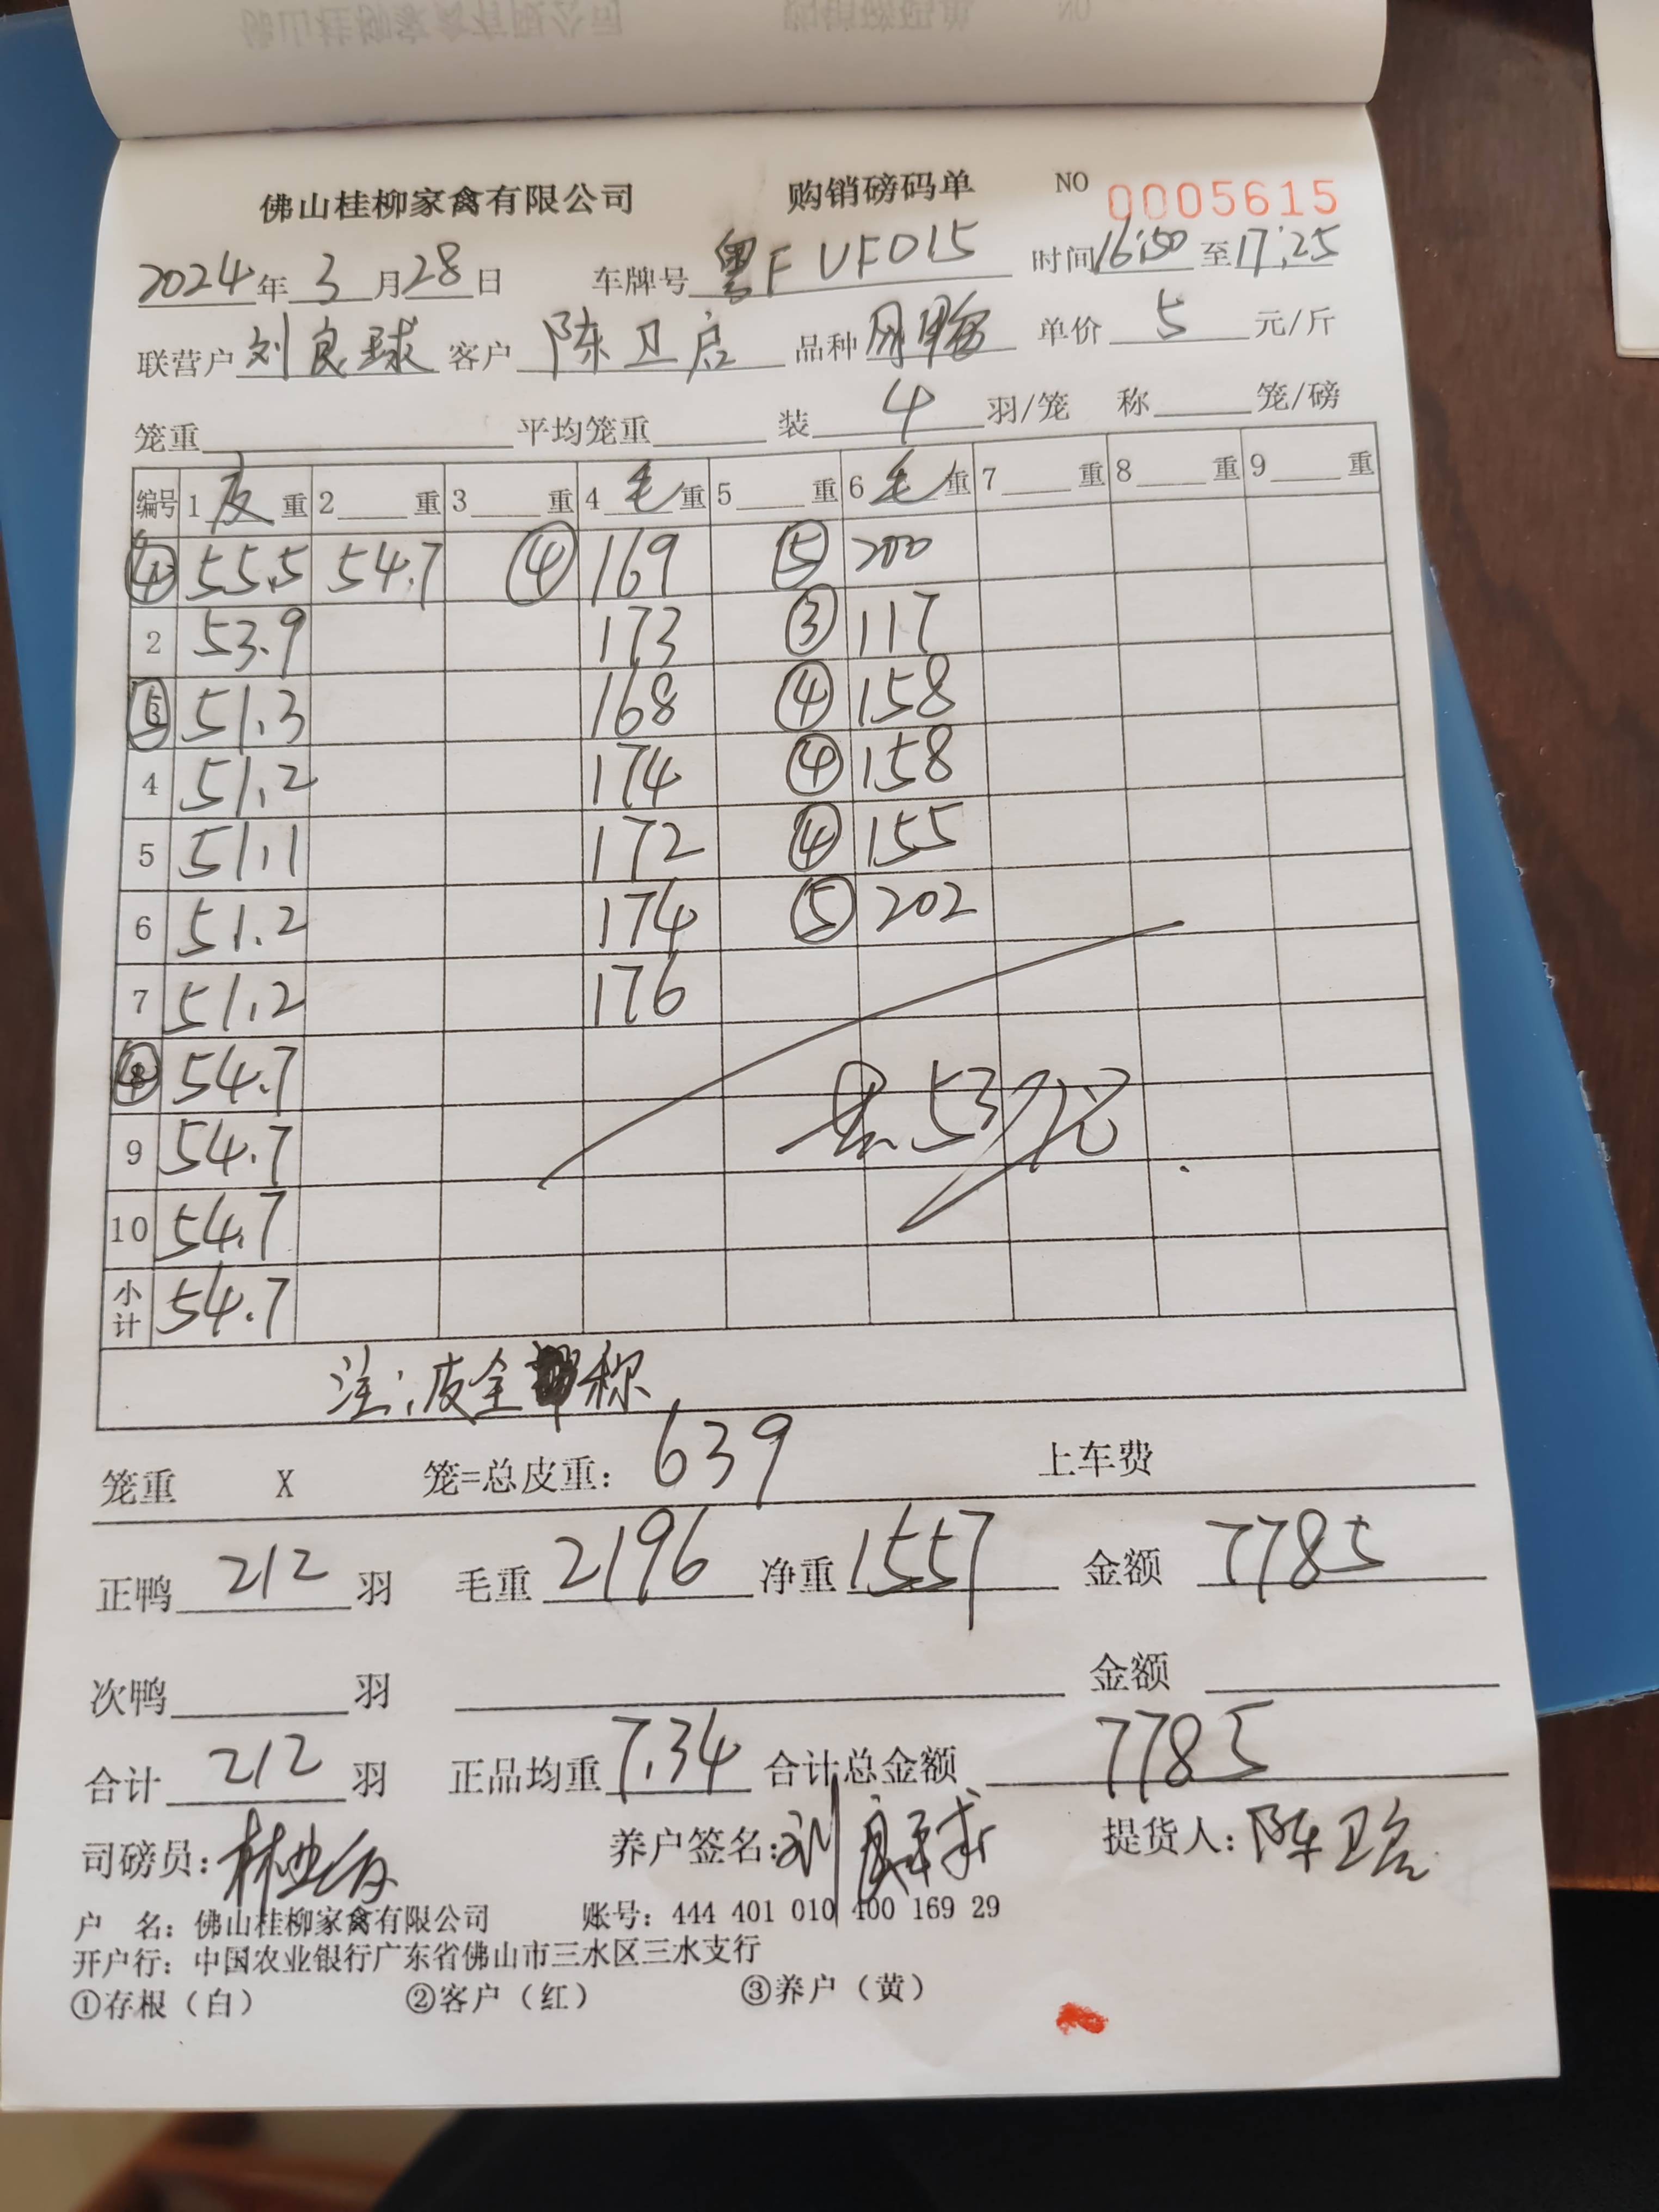 佛山桂柳家禽有限公司 购销磅码单 NO 0005615
2024年3月28日 车牌号 粤F UF015 时间16:50至17:25
联营户 刘良球 客户 陈卫启 品种 单价 5 元/斤
笼重 平均笼重 装 4 羽/笼 称 笼/磅
编号 1 皮 重 2 重 3 重 4 毛 重 5 重 6 毛 重 7 重 8 重 9 重
④ 55.5 54.7 ④ 169 ⑤ 200
2 53.9 173 ③ 117
⑤ 51.3 168 ④ 158
4 51.2 174 ④ 158
5 51.1 172 ④ 155
6 51.2 174 ⑤ 202
7 51.2 176
④ 54.7
9 54.7 共53
10 54.7
小计 54.7
注:皮全称
笼重 X 笼=总皮重: 639 上车费
正鸭 212 羽 毛重 2196 净重 1557 金额 7785
次鸭 羽 金额
合计 212 羽 正品均重 7.34 合计总金额 7785
司磅员: 养户签名:刘良球 提货人:陈卫启
户 名:佛山桂柳家禽有限公司 账号:444 401 010 400 169 29
开户行:中国农业银行广东省佛山市三水区三水支行
①存根(白) ②客户(红) ③养户(黄)